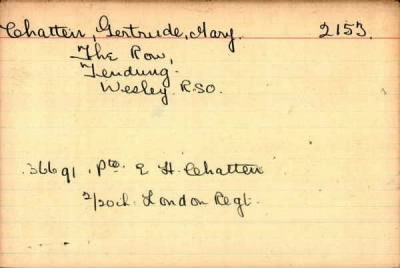 Chatten, Gertrude, Mary. 2153.
The Row,
Tendung.
Wesley. R.S.O.
36691. Pte. E H. Chatten
2/20th London Regt.